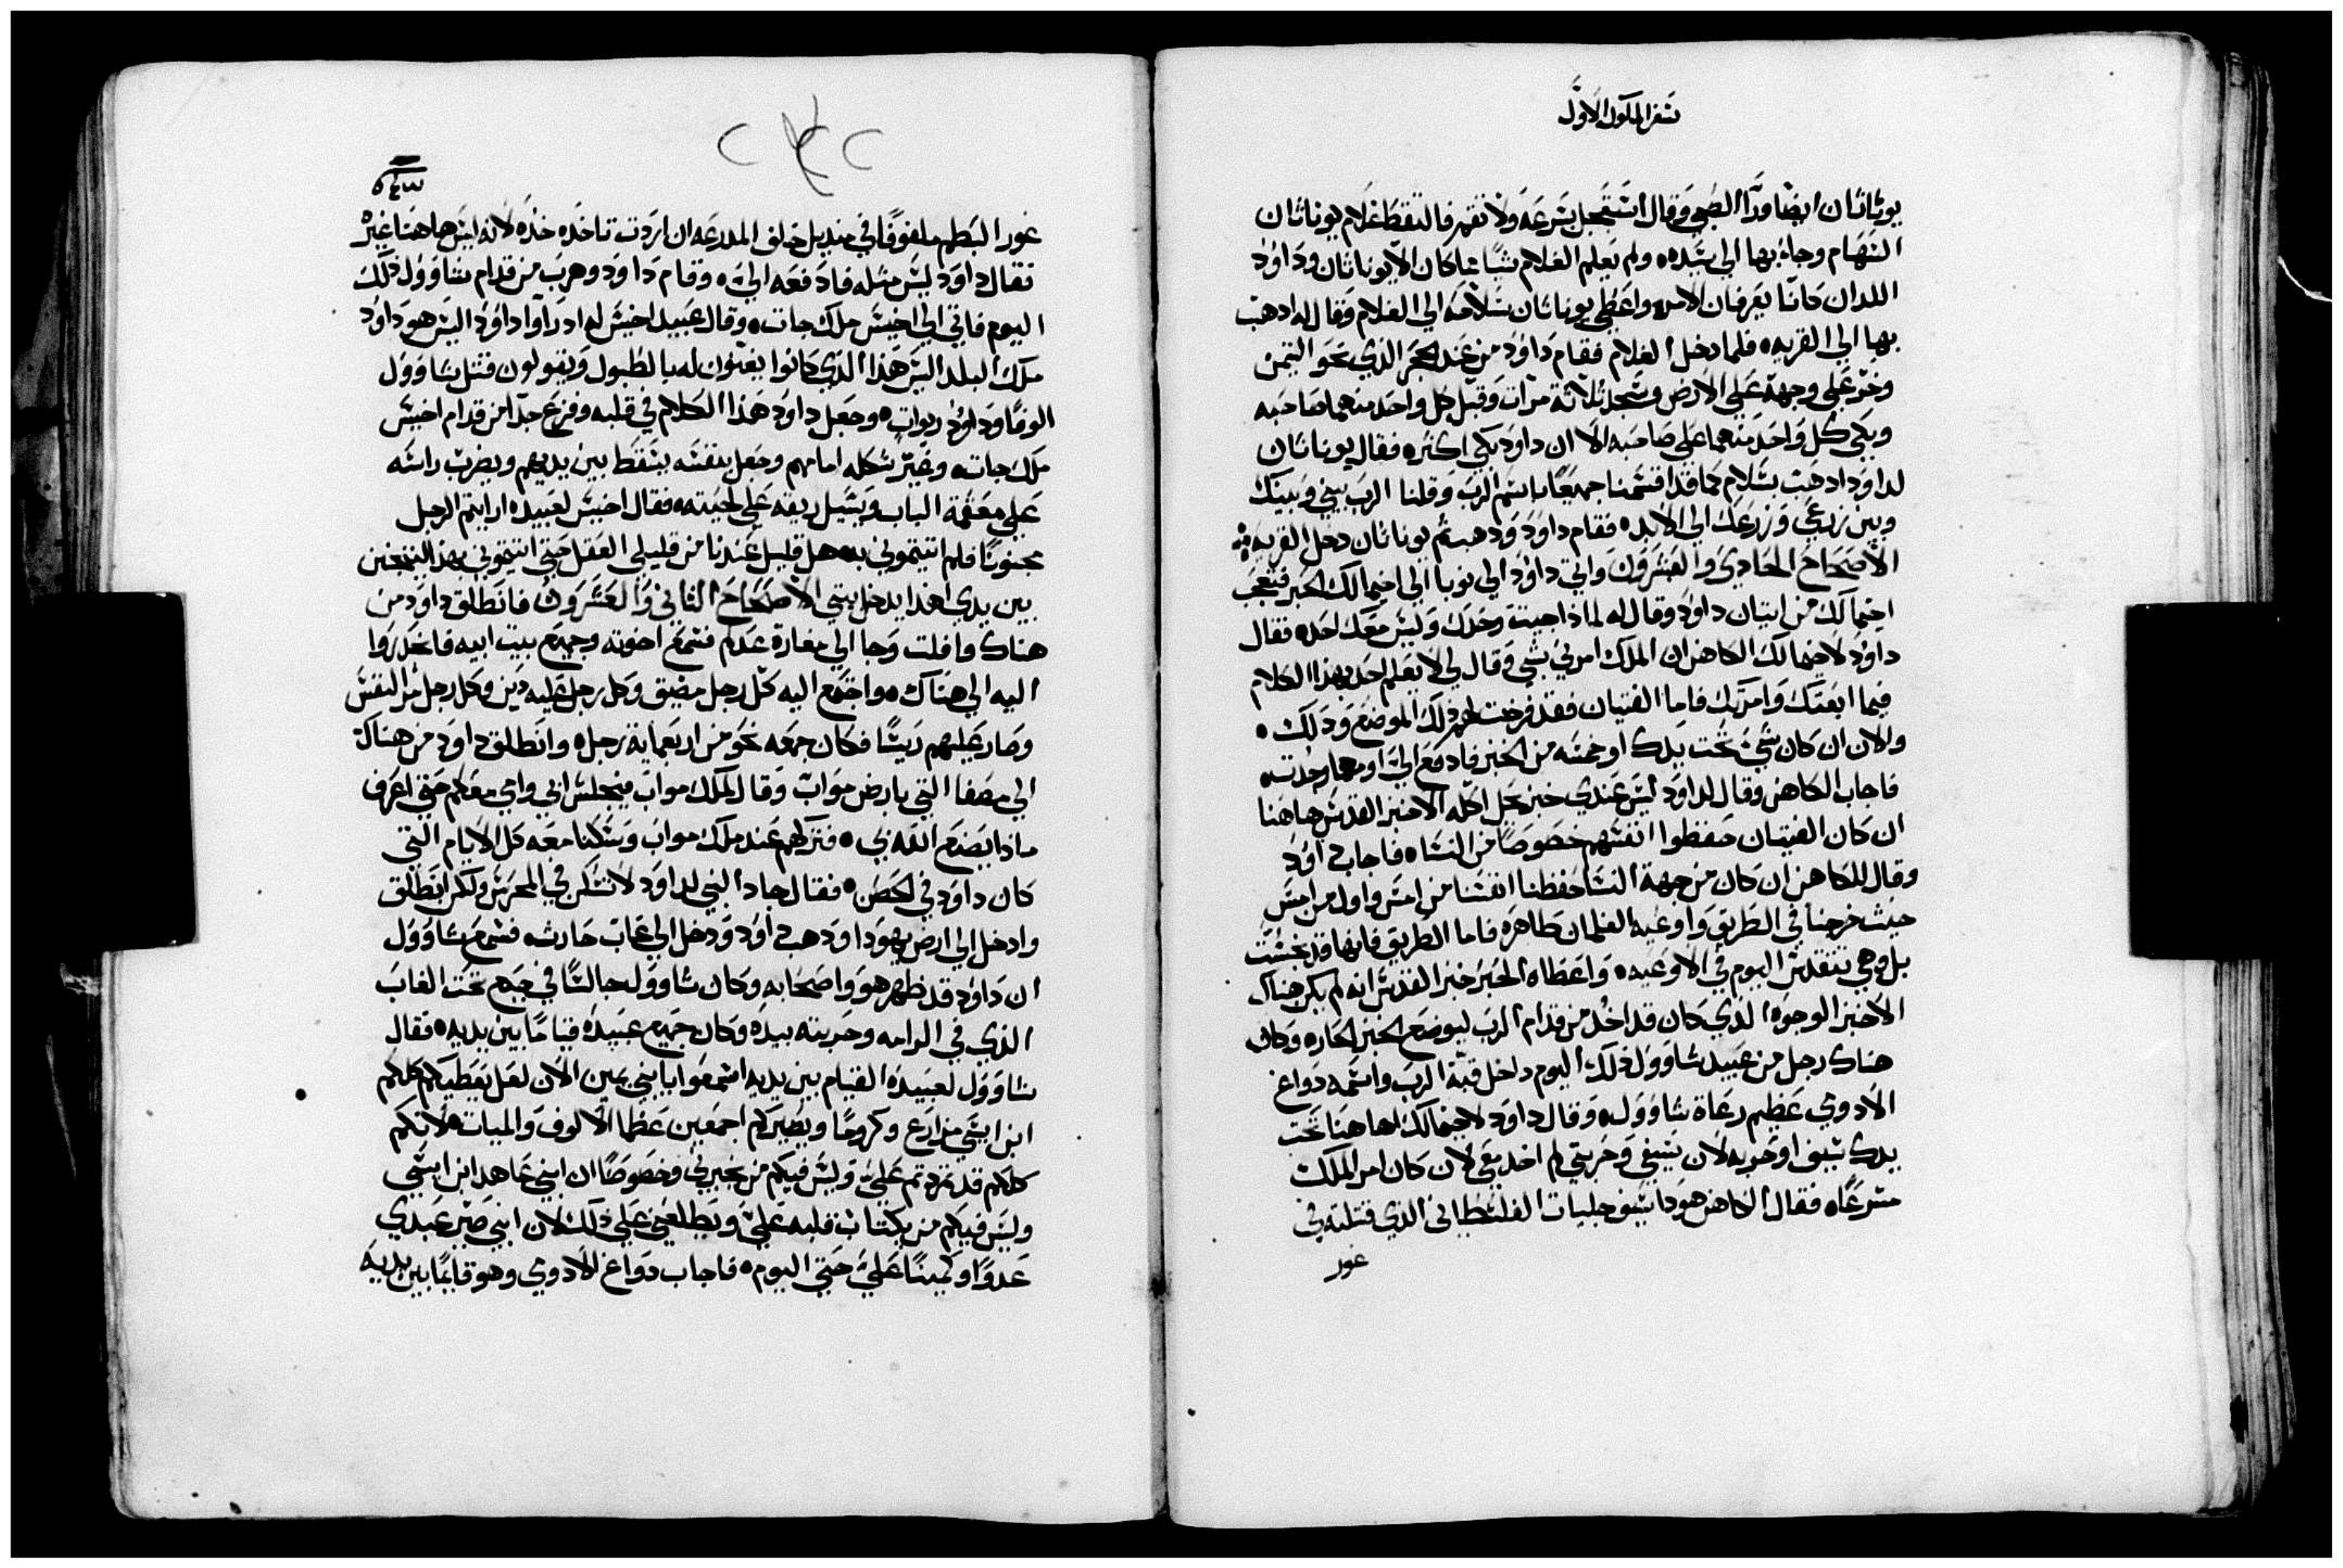 سفر الملوك الاول
يوناثان ايضا ورآ الصبي وقال استعجل بسرعه ولا تقم فالتقط غلام يوناثان
السهام وجاء بها الي سيده ولم يعلم الغلام شيا مما كان الا يوناثان وداوود
اللدان كانا يعرفان الامر واعطي يوناثان سلاحه الي الغلام وقال له ادهب
بها الي القريه فلما دخل الغلام فقام داوود من عند الحجر الذي نحو التيمن
وخر علي وجهه علي الارض وسجد ثلاثة مرات وقبل كل واحد منهما صاحبه
وبكي كل واحد منهما علي صاحبه الا ان داود بكي اكثره فقال يوناثان
لداود ادهب بسلام كما قد اقسمنا جميعا باسم الرب وقلنا الرب بيني وبينك
وبين زرعي وزرعك الي الابد فقام داود ودهب ثم يوناثان دخل القريه
الاصحاح الحادي والعشرون واتي داوود الي نوبا الي اخيمالك الحبر فتعجب
اخيمالك من اتيان داوود وقال له لماذا جيت وحدك وليس معك احد فقال
داوود لاخيمالك الكاهن ان الملك امرني بشي وقال لي لا يعلم احد بهذا الكلام
فيما ابعتك وامرتك فاما الفتيان فقد فرضت لهم ذلك الموضع وذلك
والان ان كان شي تحت يدك او خمسه من الخبز فادفع الي او مهما وجدته
فاجاب الكاهن وقال لداود ليس عندي خبز يحل اكله الا خبز القدس هاهنا
ان كان الفتيان حفظوا انفسهم خصوصا من النساء فاجاب داوود
وقال للكاهن ان كان من جهة النسا حفظنا انفسنا من امس واول من امس
حيث خرجنا في الطريق واوعية الغلمان طاهره فاما الطريق فانها قد نجست
بل وهي تتقدس اليوم في الاوعيه واعطاه الحبر خبز القدس انه لم يكن هناك
الا خبز الوجوه الذي كان قد اخد من قدام الرب ليوضع الخبز الحار وكان
هناك رجل من عبيد شاوول ذلك اليوم داخل قبة الرب واسمه دواغ
الادومي عظيم رعاة شاوول وقال داود لاخيمالك اها هنا تحت
يدك سيف او حربه لان سيفي وحربتي لم اخد معي لان كان امر الملك
مسرعا فقال الكاهن هودا سيف جليات الفلسطاني الذي قتلته في
غور
٥٤٣
غور البطم ملفوفا في منديل خلف المدرعه ان اردت تاخده خده لانه ليس هاهنا غيره
فقال داود ليس مثله فادفعه الي وقام داود وهرب من قدام شاوول ذلك
اليوم فاتي الي اخيس ملك جات وقال عبيد اخيس له ادراوا داوود اليس هو داود
ملك البلد اليس هذا الذي كانوا يغنون له بالطبول ويقولون قتل شاوول
الوفا وداوود ربوات وجعل داود هذا الكلام في قلبه وفزع جدا من قدام اخيس
ملك جات وغير شكله امامهم وجعل بنفسه يسقط بين يديهم ويضرب راسه
علي معتمة الباب ويسيل ريقه علي لحيته فقال اخيس لعبيده ارايتم الرجل
مجنونا فلم اتيتموني به هل قليل عندنا من قليلي العقل حتي اتيتموني بهذا ليتمجنن
بين يدي اهذا يدخل بيتي الاصحاح الثاني والعشرون فانطلق داود من
هناك وافلت وجا الي مغارة عدلم فسمع اخوته وجميع بيت ابيه فانحدروا
اليه الي هناك واجتمع اليه كل رجل مضيق وكل رجل عليه دين وكل رجل مر النفس
وصار عليهم ريسا فكان جمعه نحو من اربعماية رجل وانطلق داود من هناك
الي مصفا التي بارض مواب وقال لملك مواب فيجلس ابي وامي معكم حتي اعرف
ماذا يصنع الله بي فتركهم عند ملك مواب وسكنا معه كل الايام التي
كان داود في الحصن فقال جاد النبي لداود لا تسكن في المحرس ولكن انطلق
وادخل الي ارض يهودا ودهب داوود ودخل الي غاب حارث فسمع شاوول
ان داوود قد ظهر هو واصحابه وكان شاوول جالسا في جبع تحت الغاب
الذي في الرامه وحربته بيده وكان جميع عبيده قياما بين يديه فقال
شاوول لعبيده القيام بين يديه اسمعوا يا بني يمين الان لعل يعطيكم كلكم
ابن ايسي مزارع وكروما ويصيركم اجمعين عظما الالوف والميات لانكم
كلكم قد تمردتم علي وليس فيكم من يخبرني وخصوصا ان ابني عاهد ابن ايسي
وليس فيكم من علي ويطلعني علي ذلك لان ابني صير عبدي
عدوا وكمينا علي حتي اليوم فاجاب دواغ الادومي وهو قايما بين يديه